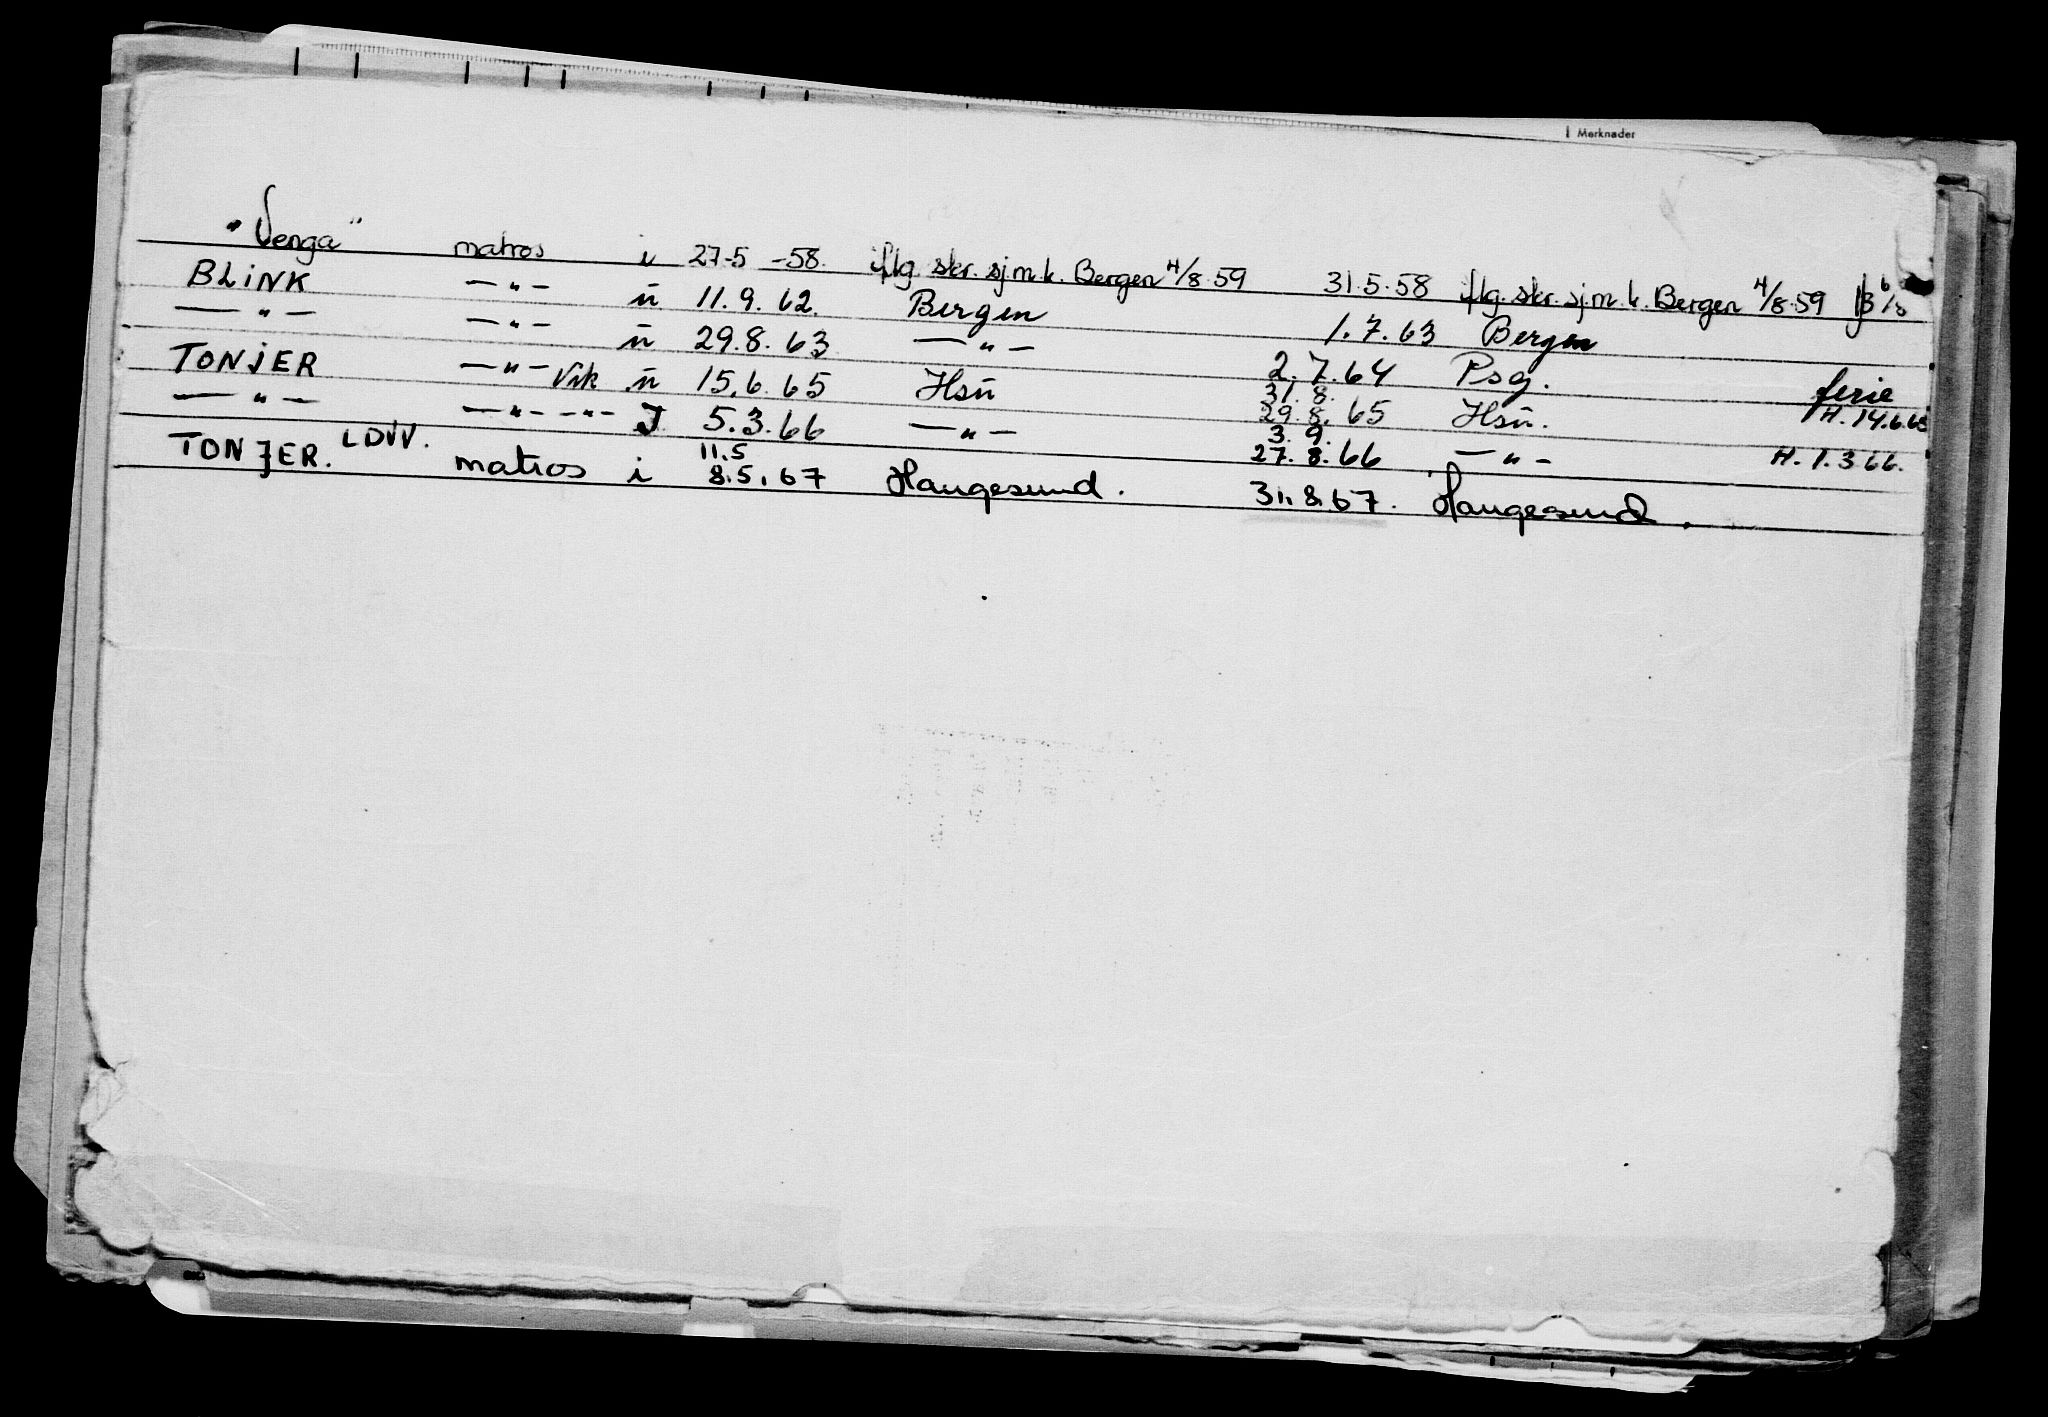 Merknader
"Venga" matros i 27-5 -58. iflg. skr. sjm.k. Bergen 4/8.59 31.5.58 iflg. skr. sjm.k. Bergen 4/8.59
BLINK —"— ü 11.9.62. Bergen 1.7.63 Bergen
—"— —"— ü 29.8.63 —"— 2.7.64 Psg. ferie
TONJER —"— Vik ü 15.6.65 Hsü 31.8. 29.8.65 Hsü. H. 14.6.65
—"— —"— —"— J 5.3.66 —"— 3.9. 27.8.66 —"— H. 1.3.66.
TONJER. LDVV. matros i 11.5 8.5.67 Haugesund. 31.8.67. Haugesund.